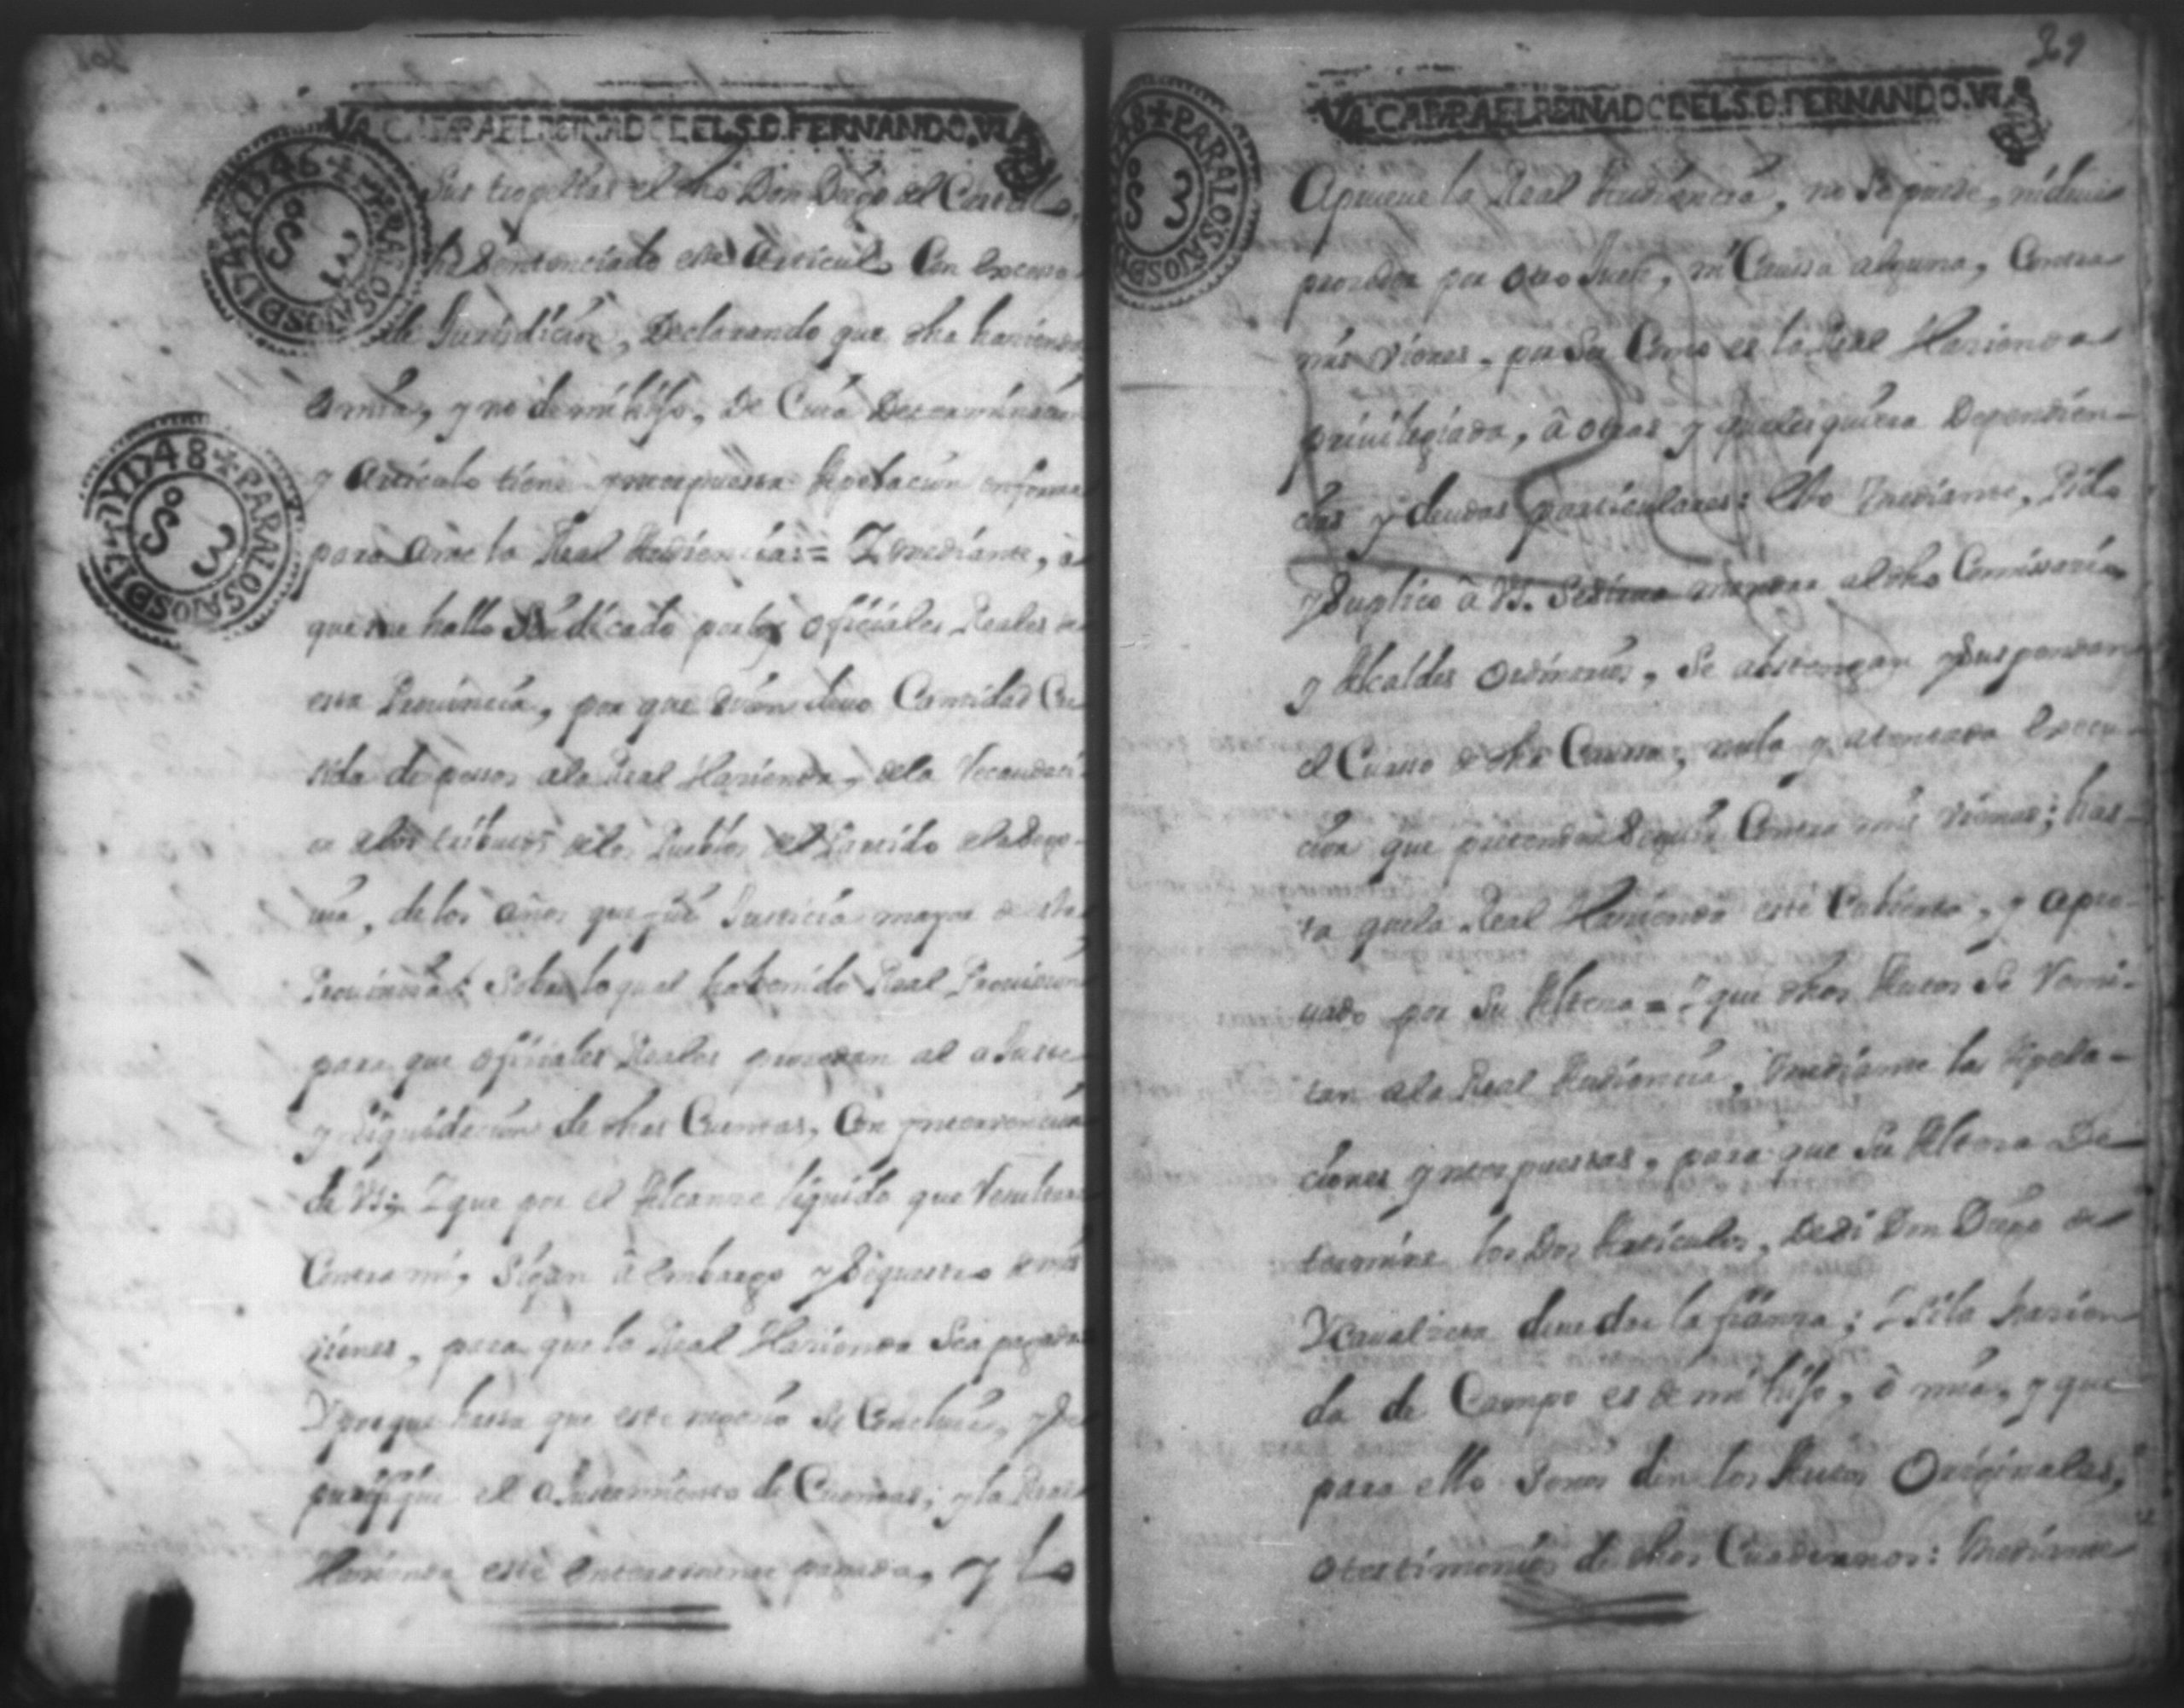 VALGA PARA EL REINADO DEL S. D. FERNANDO. VI
sus tropelias el dho Don Diego del Castillo,
ha sentenciado este Articulo Con excesso
de Jurisdicion, Declarando que dha hacienda
es mia, y no de mi hijo, de Cuia Determinacion
y Articulo tiene ynterpuessta Apelacion en forma
para ante la Real Audiencia = Y mediante, a
que me hallo Sindicado por los oficiales Reales de
esta Provincia, por que devo Cantidad Cre
sida de pessos a la Real Hacienda, de la Recaudaci
on de los tributos de los Pueblos del Partido
de los años que fui Justicia mayor de esta
Provincia: Sobre lo qual ha venido Real Provicion
para que oficiales Reales procedan al ajuste
y liquidacion de dhas Cuentas, Con yntervencion
de VS; Y que por el Alcance liquido que Resultare
Contra mi, sigan â embargo y Sequestro de mis
vienes, para que la Real Hacienda Sea pagada
Y porque hasta que este negocio se Concluia, y se
el ajustamiento de Cuentas; y la Real
Hacienda esté enteramente pagada, y lo
YD1746 + PARA LOS AÑOS D 1745
S 3
YD1748 + PARA LOS AÑOS D 174
S 3
29
VALGA PARA EL REINADO DEL S. D. FERNANDO. VI
Aprueve la Real Audiencia, no se puede, ni deve
proceder por otro Juez, ni Caussa alguna, Contra
mis vienes, por ser Como es la Real Hacienda
privilegiada, â otras y qualesquiera Dependen-
cias y deudas particulares: Mediante, Pido
y Suplico â VS. se sirva mandar al dho Comissario
y Alcaldes ordinarios, se abstengan y suspendan
el Curso de dha Caussa, nula y atentada Execu-
cion que pretenden seguir Contra mis vienes; has-
ta que la Real Hacienda esté Cubierta, y apro-
vado por Su Alteza = Y que dhos Autos se Remi-
tan a la Real Audiencia, mediante las Apela-
ciones ynterpuestas, para que Su Alteza De-
termine los Dos Articulos, De si Don Diego de
deve dar la fianza; Y si la hacien-
da de Campo es de mi hijo, ô mia, y que
para ello se nos den los Autos Originales,
o testimonios de dhos Cuadernos: Mediante
48 + PARA LOS AÑOS D
S 3